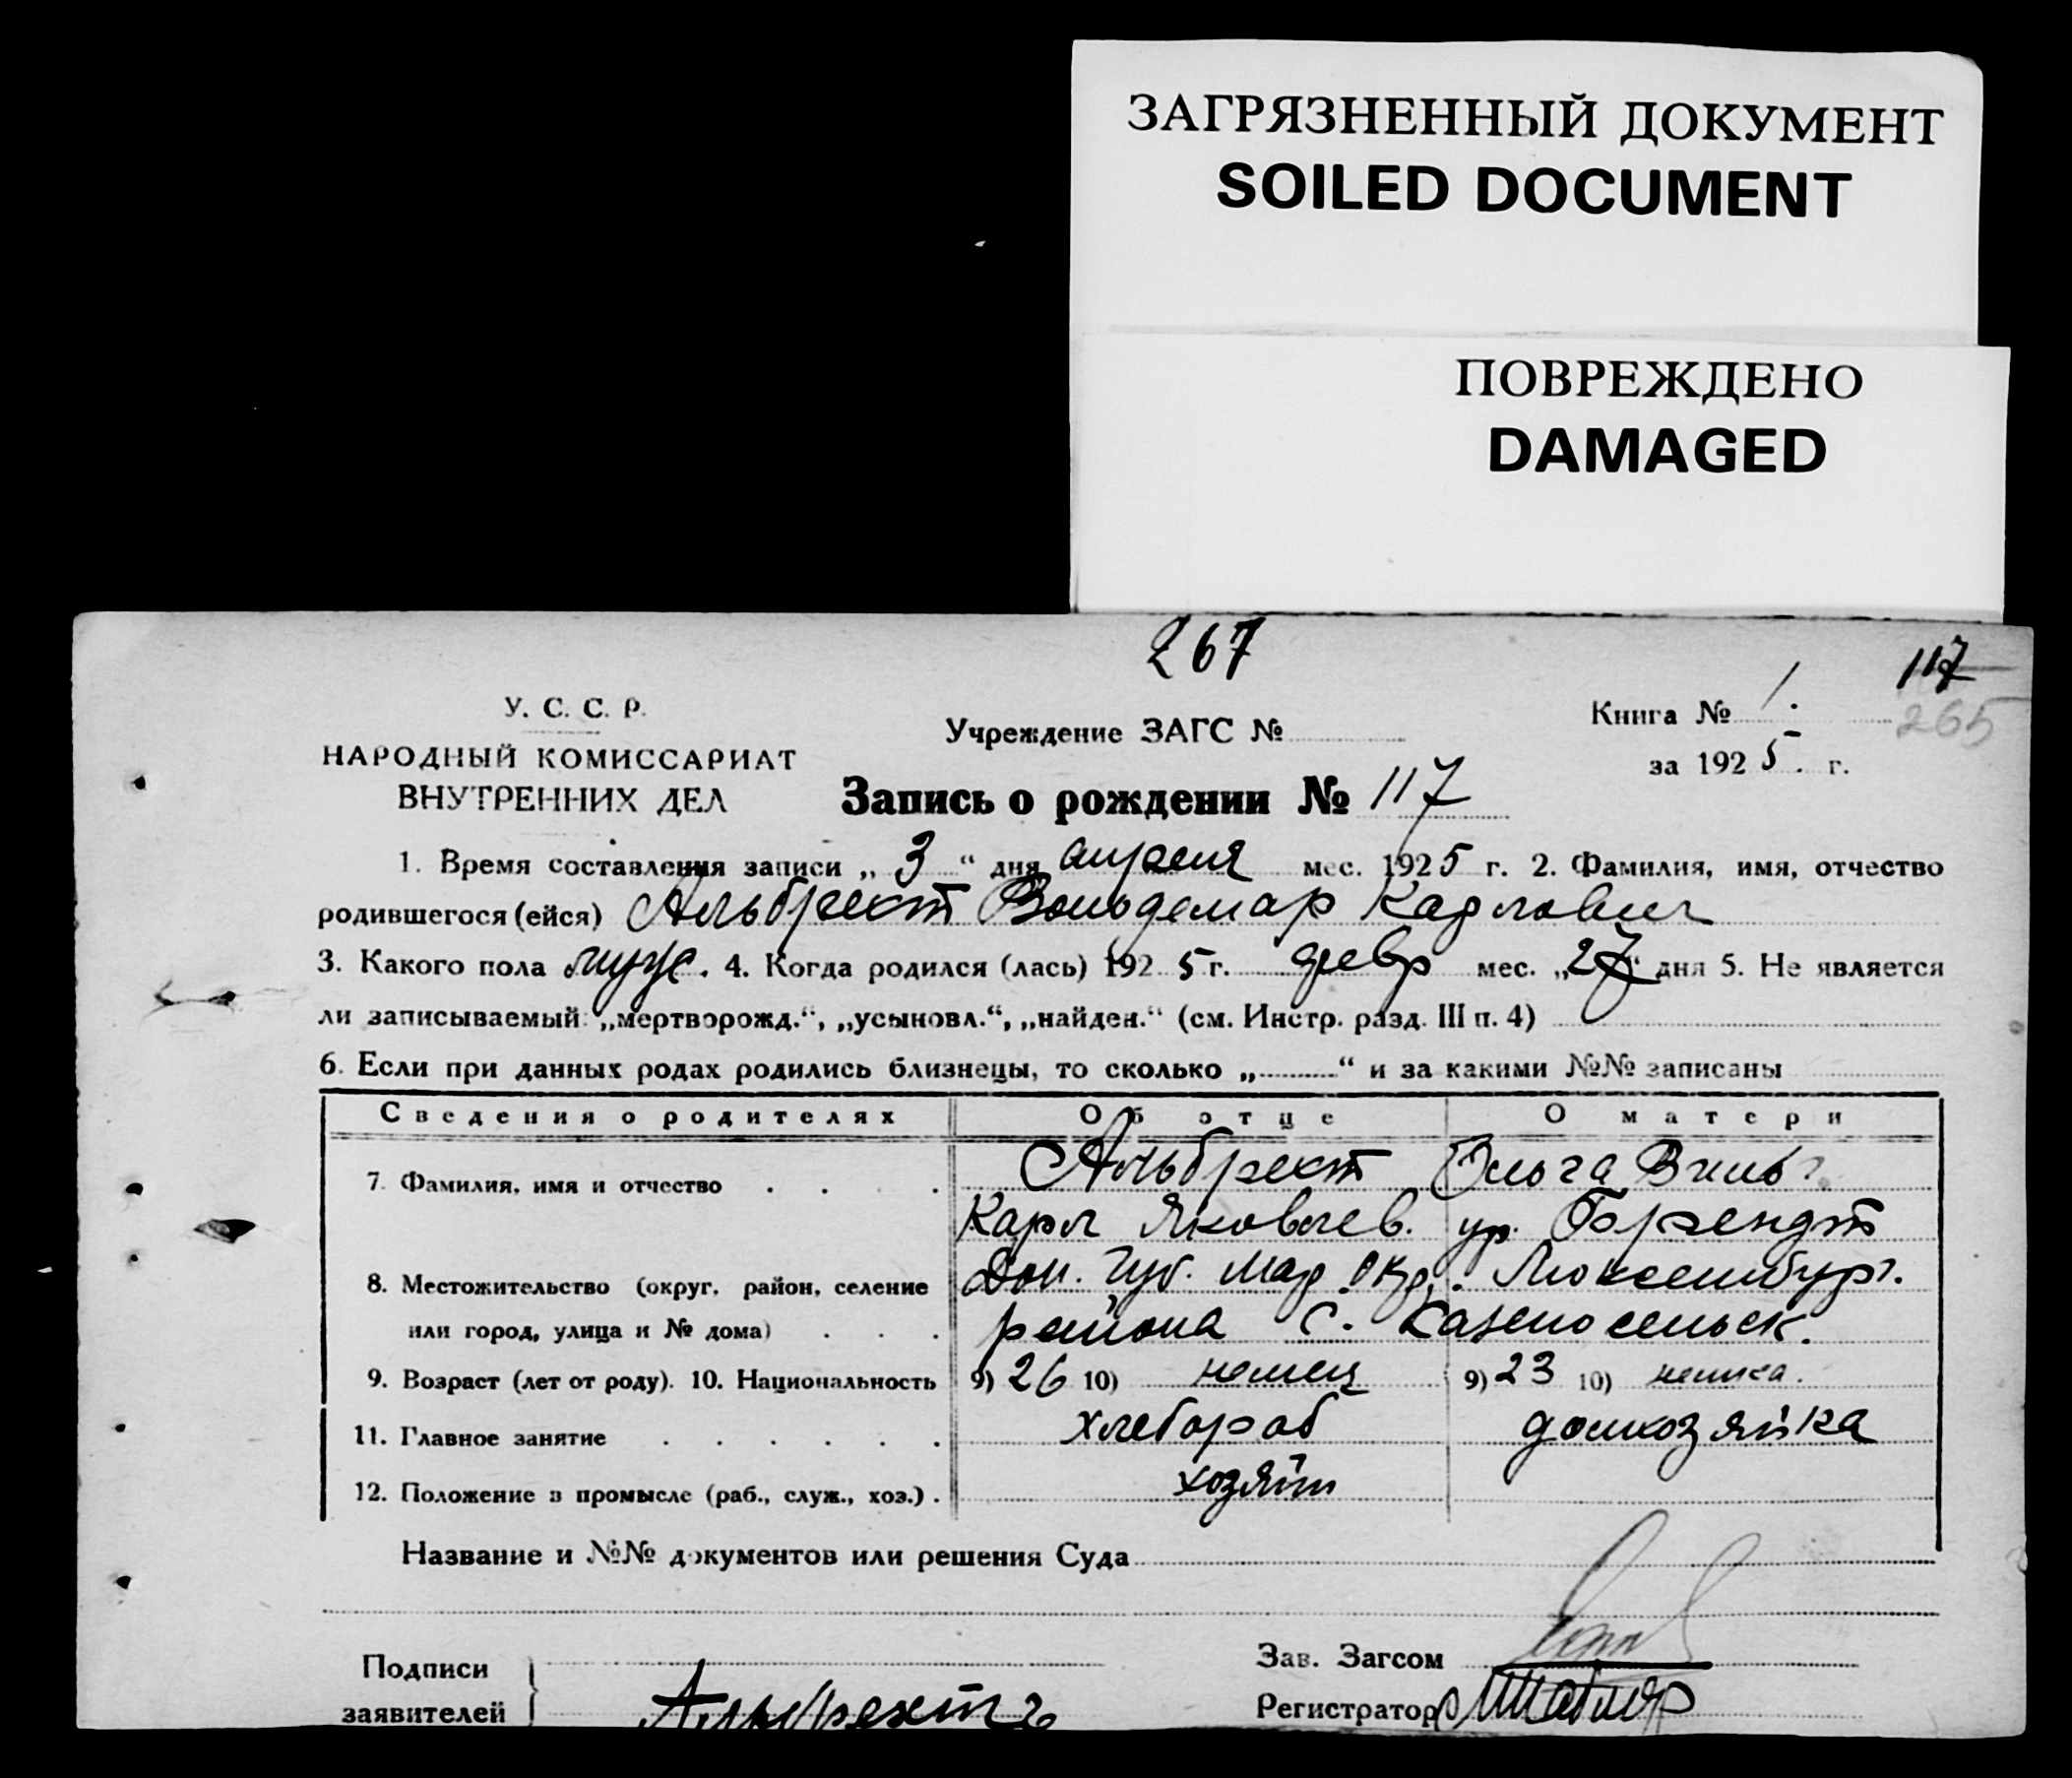 ЗАГРЯЗНЕННЫЙ ДОКУМЕНТ
SOILED DOCUMENT
ПОВРЕЖДЕНО
DAMAGED
267
117
265
У. С. С. Р.
НАРОДНЫЙ КОМИССАРИАТ
ВНУТРЕННИХ ДЕЛ
Учреждение ЗАГС №
Книга № 1.
за 1925. г.
Запись о рождении № 117
1. Время составления записи „ 3 “ дня апреля мес. 1925 г. 2. Фамилия, имя, отчество
родившегося (ейся) Альбрехт Вольдемар Карлович
3. Какого пола муж. 4. Когда родился (лась) 1925 г. февр мес. „27“ дня 5. Не является
ли записываемый: „мертворожд.“, „усыновл.“, „найден.“ (см. Инстр. разд. III п. 4)
6. Если при данных родах родились близнецы, то сколько „..........“ и за какими №№ записаны
Сведения о родителях Об отце О матери
7. Фамилия, имя и отчество Альбрехт Ольга Вильг.
Карл Яковлев. ур. Берендт
8. Местожительство (округ, район, селение Дон. Губ. Мар. Окр. Люксембург.
или город, улица и № дома) района с.
9. Возраст (лет от роду). 10. Национальность 9) 26 10) немец 9) 23 10) немка.
11. Главное занятие хлебороб домхозяйка
12. Положение в промысле (раб., служ., хоз.) . хозяин
Название и №№ документов или решения Суда
Подписи
заявителей
Альбрехт
Зав. Загсом
Регистратор